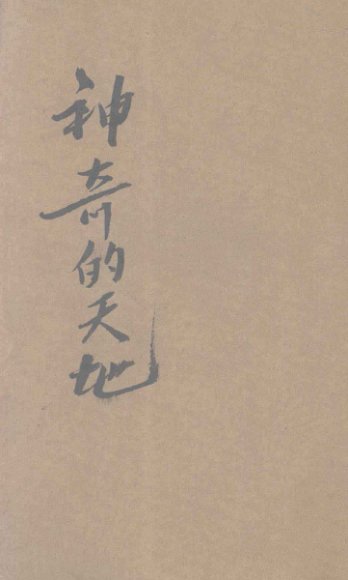 神奇的天地